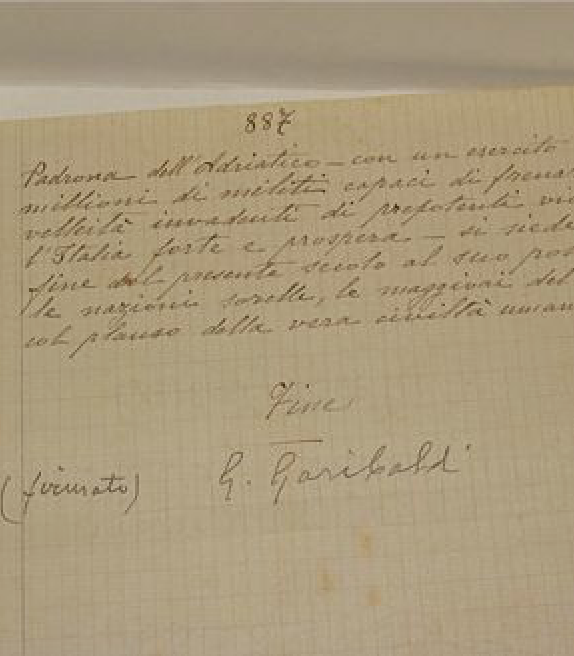 887
Padrona dell'Adriatico – con un esercito
millioni di militi capaci di frena
velleità invadenti di prepotenti vi
l'Italia forte e prospera – si siede
fine del presente secolo al suo pos
le nazioni sorelle, le maggiori del
col plauso della vera civiltà uman
Fine
(firmato) G. Garibaldi